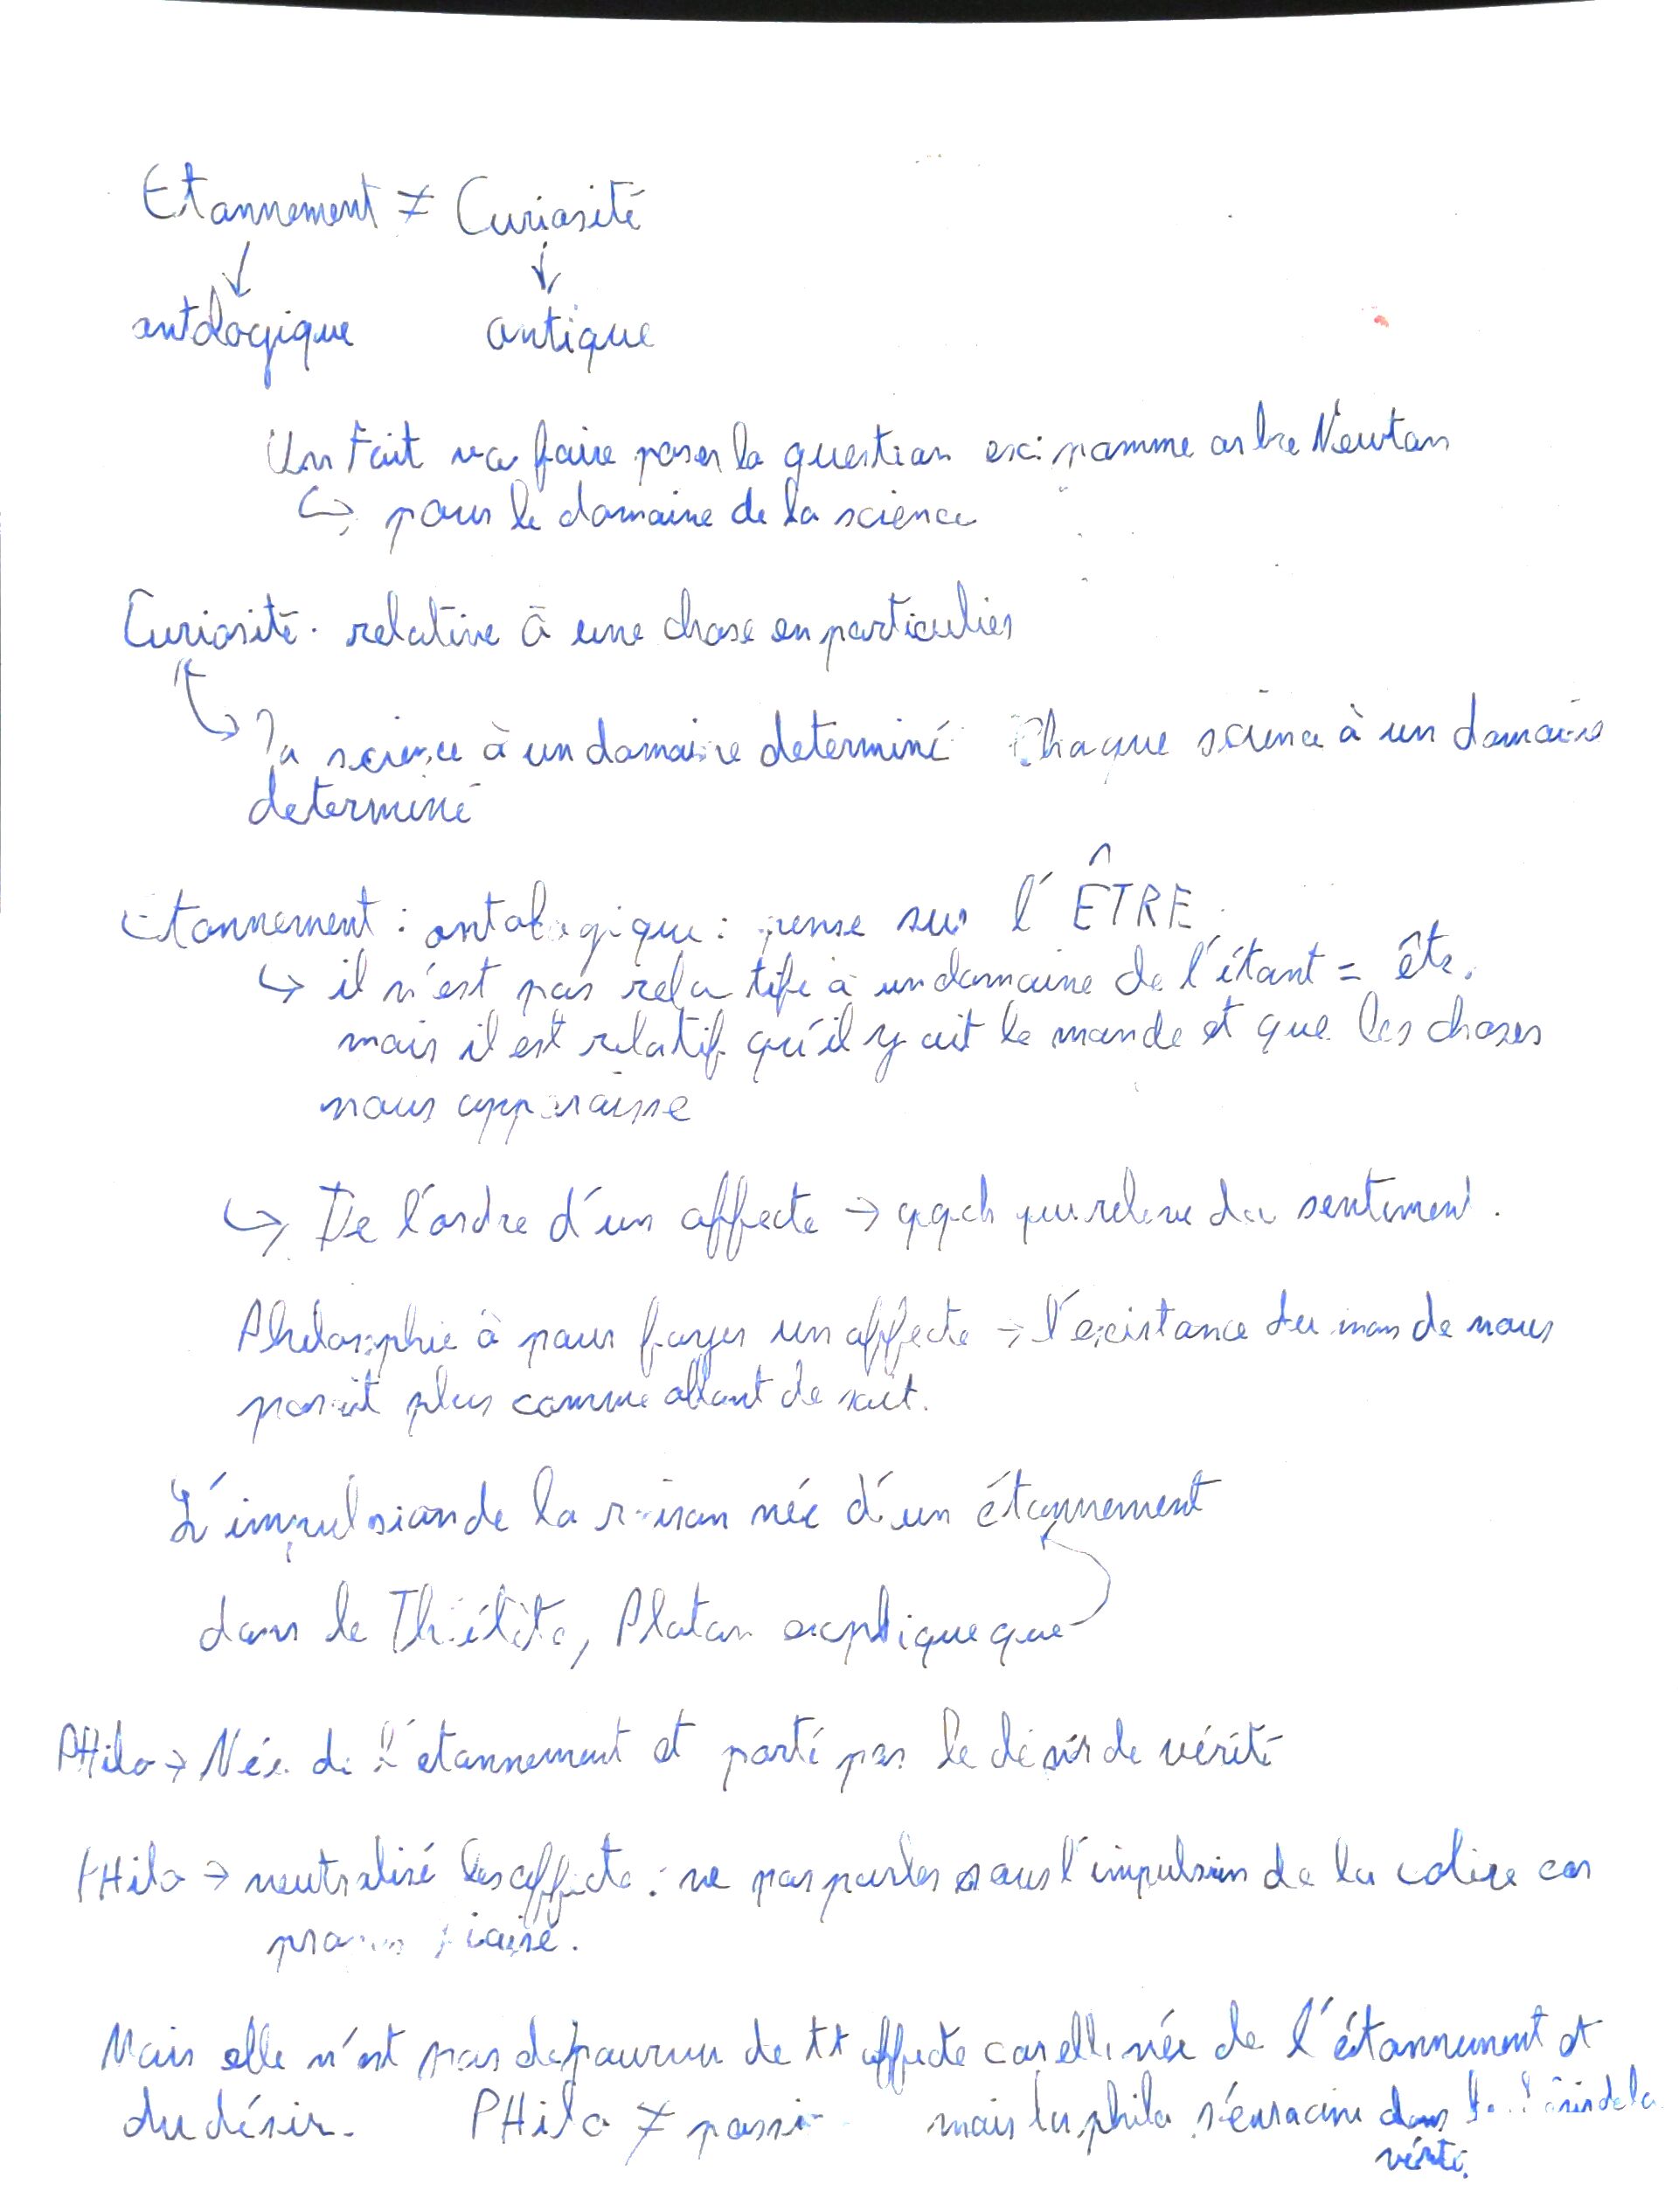 Etonnement ≠ Curiosité
↓ ↓
ontologique ontique
Un Fait va faire poser la question ex: pomme arbre Newton
↪ pour le domaine de la science
Curiosité. relative à une chose en particulier
↪ la science à un domaine determiné Chaque science à un domaine
determiné
Etonnement : ontologique : pense sur l'ÊTRE.
↪ il n'est pas relatife à un domaine de l'étant = êtr.
mais il est relatif qu'il y ait le monde et que les choses
nous apparaisse
↪ De l'ordre d'un affecte → qqch qui releve du sentiment.
Philosophie à pour foyer un affecte → l'existance du monde nous
parait plus comme allant de soit.
L'impulsion de la raison née d'un étonnement
dans le Théétète, Platon explique que
PHilo → Née de l'etonnement et porté par le désir de vérité
PHilo → neutralisé les affecte : ne pas parler sous l'impulsion de la colère car
propos biaisé.
Mais elle n'est pas depourvu de tt affecte car elle née de l'étonnement et
du désir. PHilo ≠ passi mais la philo s'enracine dans le désir de la
vérité.